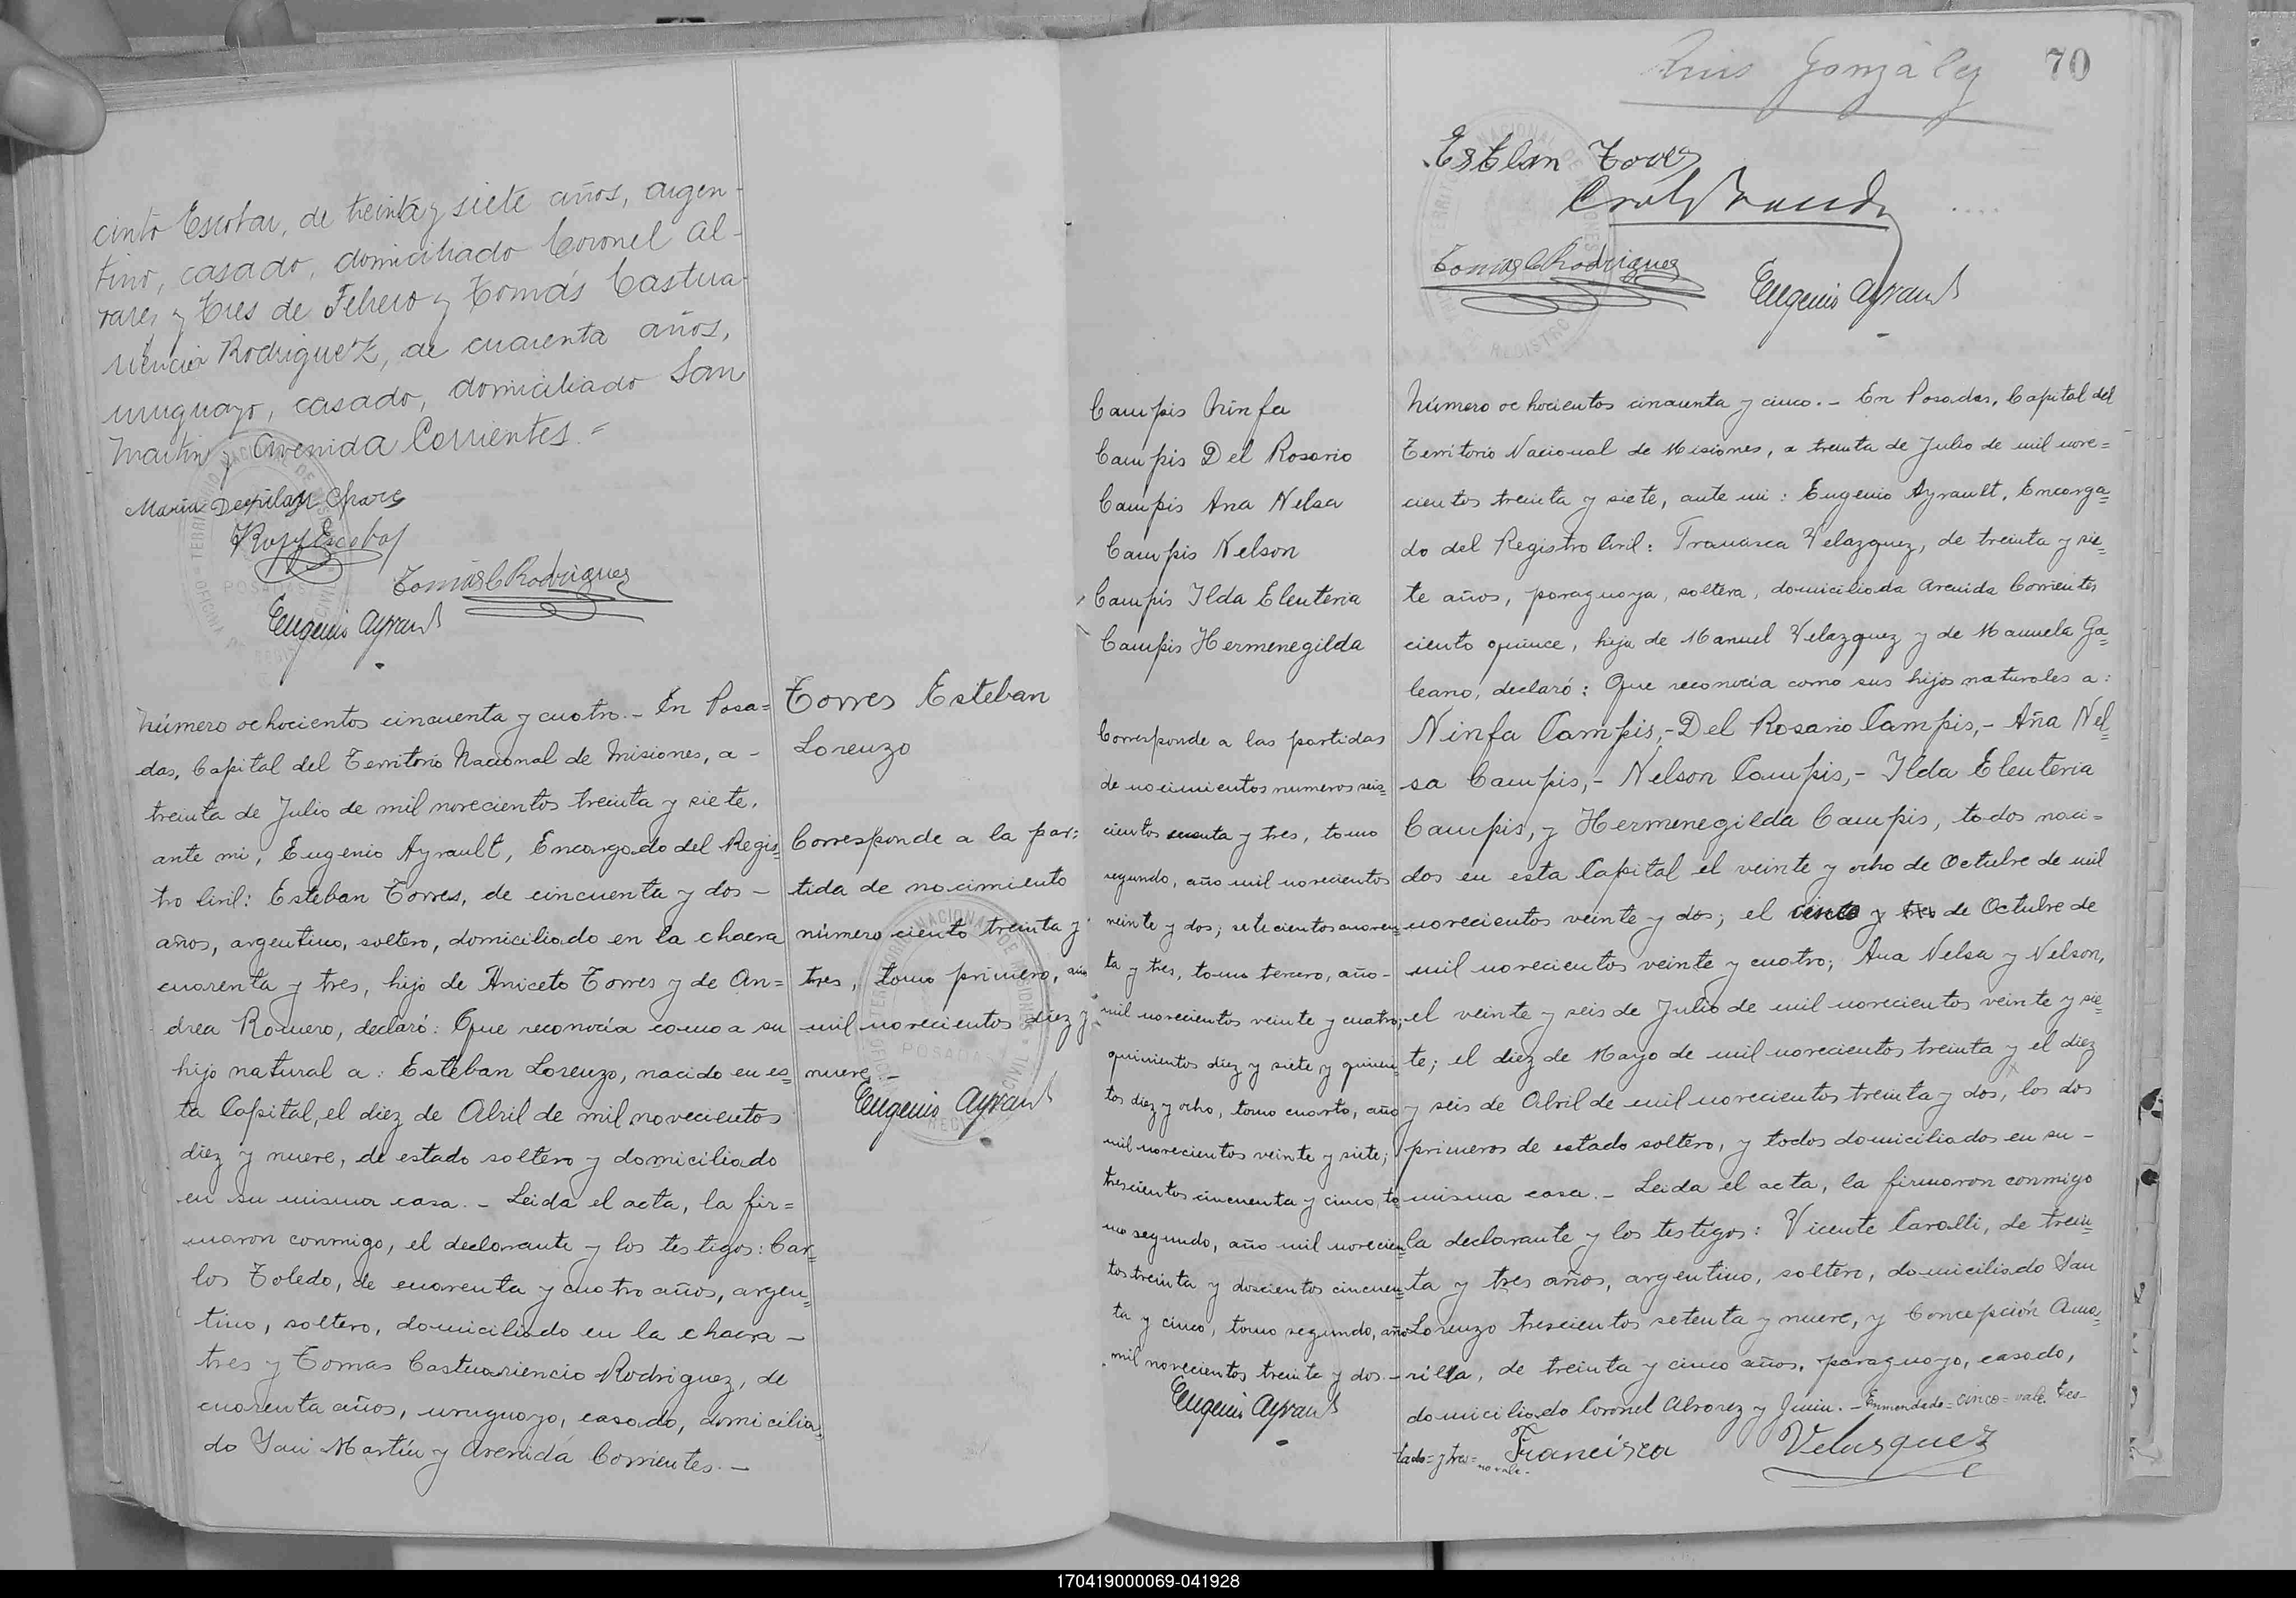 cinto Escobar, de treinta y siete años, argen-
tino, casado, domiciliado Coronel Al-
varez y Tres de Febrero y Tomás Castua-
riencio Rodriguez, de cuarenta años,
uruguayo, casado, domiciliado San
Martin y Avenida Corrientes.=
Maria
Escobar
Tomás C Rodriguez
Eugenio Ayrault
Número ochocientos cincuenta y cuatro.- En Posa=
das, Capital del Territorio Nacional de Misiones, a -
treinta de Julio de mil novecientos treinta y siete,
ante mi, Eugenio Ayrault, Encargado del Regis=
tro Civil: Esteban Torres, de cincuenta y dos -
años, argentino, soltero, domiciliado en la chacra
cuarenta y tres, hijo de Aniceto Torres y de An=
drea Romero, declaró: Que reconocía como a su
hijo natural a: Esteban Lorenzo, nacido en es=
ta Capital, el diez de Abril de mil novecientos
diez y nueve, de estado soltero y domiciliado
en su misma casa.- Leida el acta, la fir=
maron conmigo, el declarante y los testigos: Car=
los Toledo, de cuarenta y cuatro años, argen=
tino, soltero, domiciliado en la chacra -
tres y Tomas Castuariencio Rodriguez, de
cuarenta años, uruguayo, casado, domicilia=
do San Martín y Avenida Corrientes.-
Torres Esteban
Lorenzo
Corresponde a la par=
tida de nacimiento
número ciento treinta y
tres, tomo primero, año
mil novecientos diez y
nueve.-
Eugenio Ayrault
Luis González
70
Esteban Torres
Tomás C Rodriguez
Eugenio Ayrault
Campis Ninfa
Campis Del Rosario
Campis Ana Nelsa
Campis Nelson
Campis Ilda Eleuteria
Campis Hermenegilda
Corresponde a las partidas
de nacimientos numeros seis=
cientos y tres, tomo
segundo, año mil novecientos
veinte y dos; setecientos cuaren=
ta y tres, tomo tercero, año-
mil novecientos veinte y cuatro;
quinientos diez y siete y quinien=
tos diez y ocho, tomo cuarto, año
mil novecientos veinte y siete;
trescientos cincuenta y cinco, to
mo segundo, año mil novecien=
tos treinta y doscientos cincuen=
ta y cinco, tomo segundo, año
mil novecientos treinta y dos.-
Eugenio Ayrault
Número ochocientos cincuenta y cinco.- En Posadas, Capital del
Territorio Nacional de Misiones, a treinta de Julio de mil nove=
cientos treinta y siete, ante mi: Eugenio Ayrault, Encarga=
do del Registro Civil: Francisca Velazquez, de treinta y sie=
te años, paraguaya, soltera, domiciliada Avenida Corrientes
ciento quince, hija de Manuel Velazquez y de Manuela Ga=
leano, declaró: Que reconocía como sus hijos naturales a:
Ninfa Campis,- Del Rosario Campis,- Ana Nel=
sa Campis,- Nelson Campis,- Ilda Eleuteria
Campis, y Hermenegilda Campis, todos naci=
dos en esta Capital el veinte y ocho de Octubre de mil
novecientos veinte y dos; el cinco y tres de Octubre de
mil novecientos veinte y cuatro; Ana Nelsa y Nelson,
el veinte y seis de Julio de mil novecientos veinte y sie=
te; el diez de Mayo de mil novecientos treinta y el diez
y seis de Abril de mil novecientos treinta y dos, los dos
primeros de estado soltero, y todos domiciliados en su -
misma casa.- Leida el acta, la firmaron conmigo
la declarante y los testigos: Vicente Cavalli, de trein=
ta y tres años, argentino, soltero, domiciliado San
Lorenzo trescientos setenta y nueve, y Concepción Ama=
rilla, de treinta y cinco años, paraguayo, casado,
domiciliado Coronel Alvarez y Junin.- Enmendado=cinco=vale. Tes-
tado=y tres= no vale.-
Francisca Velasquez
170419000069-041928